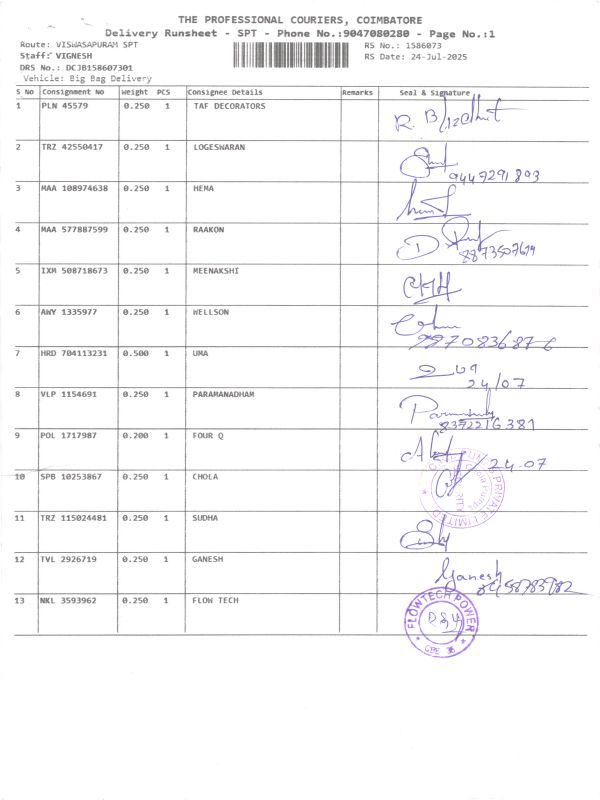 THE PROFESSIONAL COURIERS, COIMBATORE
Delivery Runsheet - SPT - Phone No.:9047080280 - Page No.:1
Route: VISWASAPURAM SPT RS No.: 1586073
Staff: VIGNESH RS Date: 24-Jul-2025
DRS No.: DCJB158607301
Vehicle: Big Bag Delivery
S No Consignment No Weight PCS Consignee Details Remarks Seal & Signature
1 PLN 45579 0.250 1 TAF DECORATORS
2 TRZ 42550417 0.250 1 LOGESWARAN
9447291893
3 MAA 108974638 0.250 1 HEMA
4 MAA 577887599 0.250 1 RAAKON
5 IXM 508718673 0.250 1 MEENAKSHI
6 AWY 1335977 0.250 1 WELLSON
7 HRD 704113231 0.500 1 UMA
24/07
8 VLP 1154691 0.250 1 PARAMANADHAM
9 POL 1717987 0.200 1 FOUR Q
24.07
10 SPB 10253867 0.250 1 CHOLA
PRIVATE LIMITED
11 TRZ 115024481 0.250 1 SUDHA
12 TVL 2926719 0.250 1 GANESH Ganesh
13 NKL 3593962 0.250 1 FLOW TECH
FLOWTECH POWER